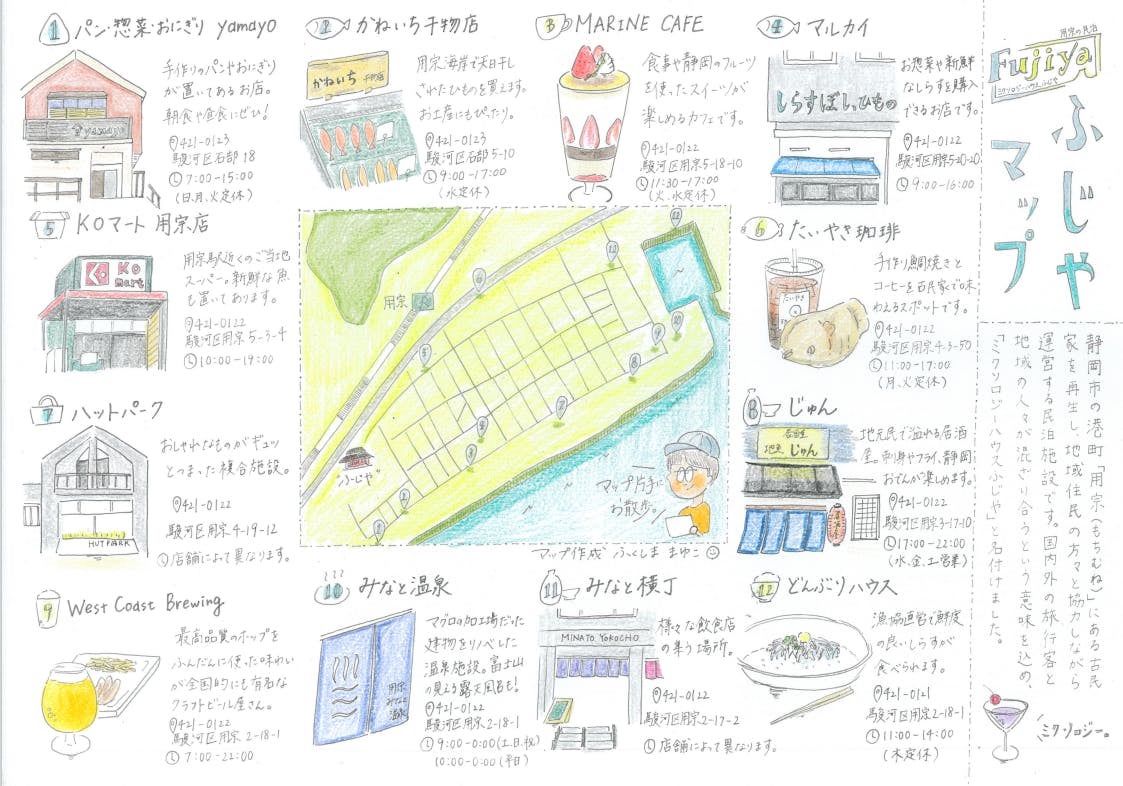 用宗の民泊
Fujiya
ミクソロジーハウスふじや
ふじや
マップ
静岡市の港町「用宗(もちむね)」にある古民
家を再生し、地域住民の方々と協力しながら
運営する民泊施設です。国内外の旅行客と
地域の人々が混ざり合うという意味を込め、
「ミクソロジーハウスふじや」と名付けました。
ミクソロジー。
1 パン・惣菜・おにぎり yamayo
yamayo
手作りのパンやおにぎり
が置いてあるお店。
朝食や昼食にぜひ!
421-0123
駿河区石部18
7:00-15:00
(日、月、火定休)
2 かねいち干物店
かねいち 干物店
用宗海岸で天日干し
されたひものを買えます。
お土産にもぴったり。
421-0123
駿河区石部5-10
9:00-17:00
(水定休)
3 MARINE CAFE
食事や静岡のフルーツ
を使ったスイーツが
楽しめるカフェです。
421-0122
駿河区用宗5-18-10
11:30-17:00
(火、水定休)
4 マルカイ
しらすぼしひもの
お惣菜や新鮮
なしらすを購入
できるお店です。
421-0122
駿河区用宗5-20-20
9:00-16:00
5 KOマート 用宗店
KO
mart
用宗駅近くのご当地
スーパー。新鮮な魚
も置いてあります。
421-0122
駿河区用宗5-3-4
10:00-19:00
6 たいやき珈琲
たいやき
手作り鯛焼きと
コーヒーを古民家で味
わえるスポットです。
421-0122
駿河区用宗4-3-50
11:00-17:00
(月、火定休)
7 ハットパーク
HUTPARK
おしゃれなものがギュッ
とつまった複合施設。
421-0122
駿河区用宗4-19-12
店舗によって異なります。
8 じゅん
居酒屋
地魚 じゅん
地元民で溢れる居酒
屋。刺身やフライ、静岡
おでんが楽しめます。
421-0122
駿河区用宗3-17-10
17:00-22:00
(水、金、土営業)
9 West Coast Brewing
最高品質のホップを
ふんだんに使った味わい
が全国的にも有名な
クラフトビール屋さん。
421-0122
駿河区用宗2-18-1
7:00-22:00
10 みなと温泉
用宗
みなと
温泉
マグロの加工場だった
建物をリノベした
温泉施設。富士山
の見える露天風呂も!
421-0122
駿河区用宗2-18-1
9:00-0:00(土、日、祝)
10:00-0:00(平日)
11 みなと横丁
MINATO YOKOCHO
様々な飲食店
の集う場所。
421-0122
駿河区用宗2-17-2
店舗によって異なります。
12 どんぶりハウス
漁協直営で鮮度
の良いしらすが
食べられます。
421-0121
駿河区用宗2-18-1
11:00-14:00
(木定休)
用宗
ふじや
マップ片手に
お散歩。
マップ作成 ふくしま まゆこ